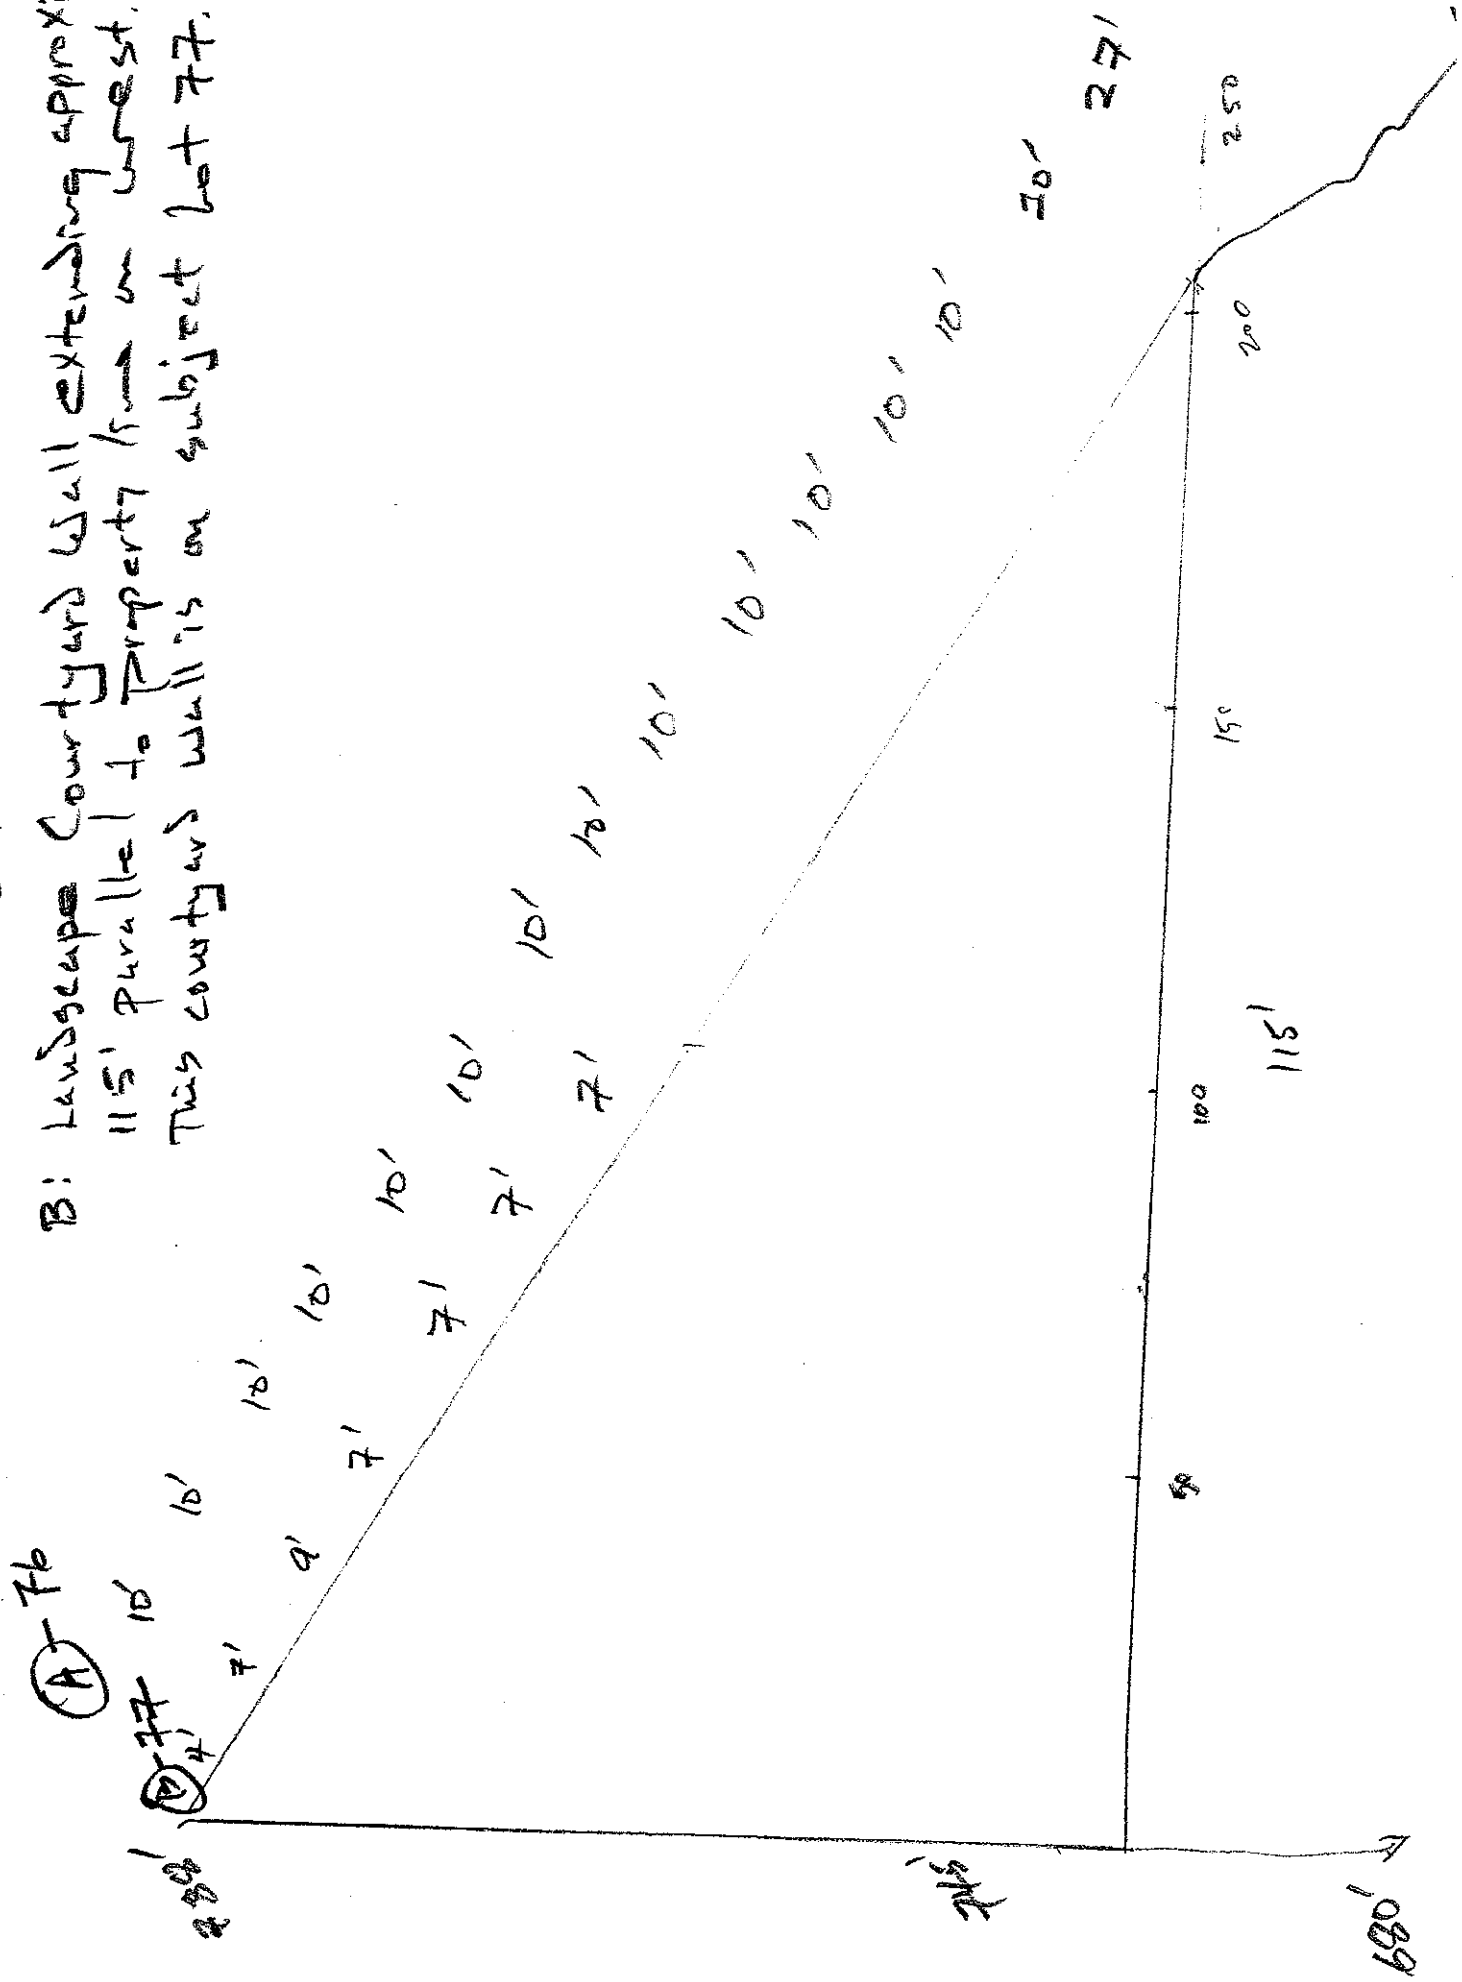 B: Landscape Courtyard Wall extending approx
115' Parallel to Property line on west.
This courtyard wall is on subject Lot 77.
A-76
B-77
10'
10'
10'
10'
10'
10'
10'
10'
10'
10'
10'
10'
10'
10'
27'
4'
7'
9'
7'
7'
7'
7'
50
100
150
200
250
115'
680'